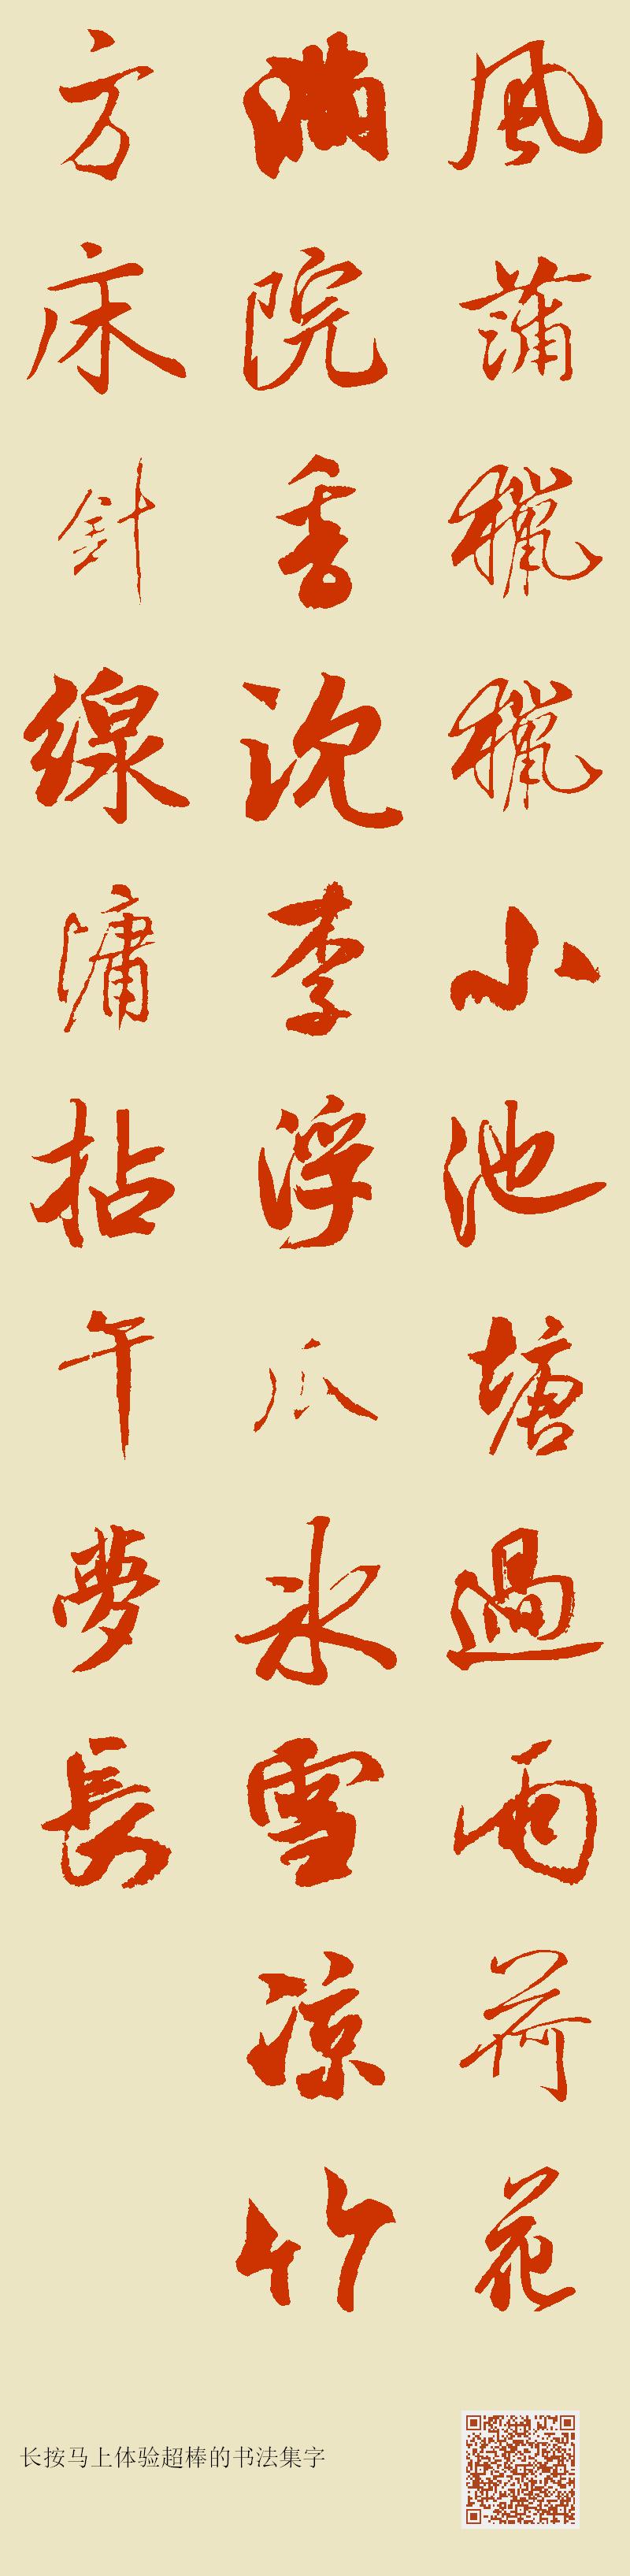 風蒲獵獵小池塘過雨荷花
滿院香沈李浮瓜冰雪涼竹
方床針線慵拈午夢長
长按马上体验超棒的书法集字